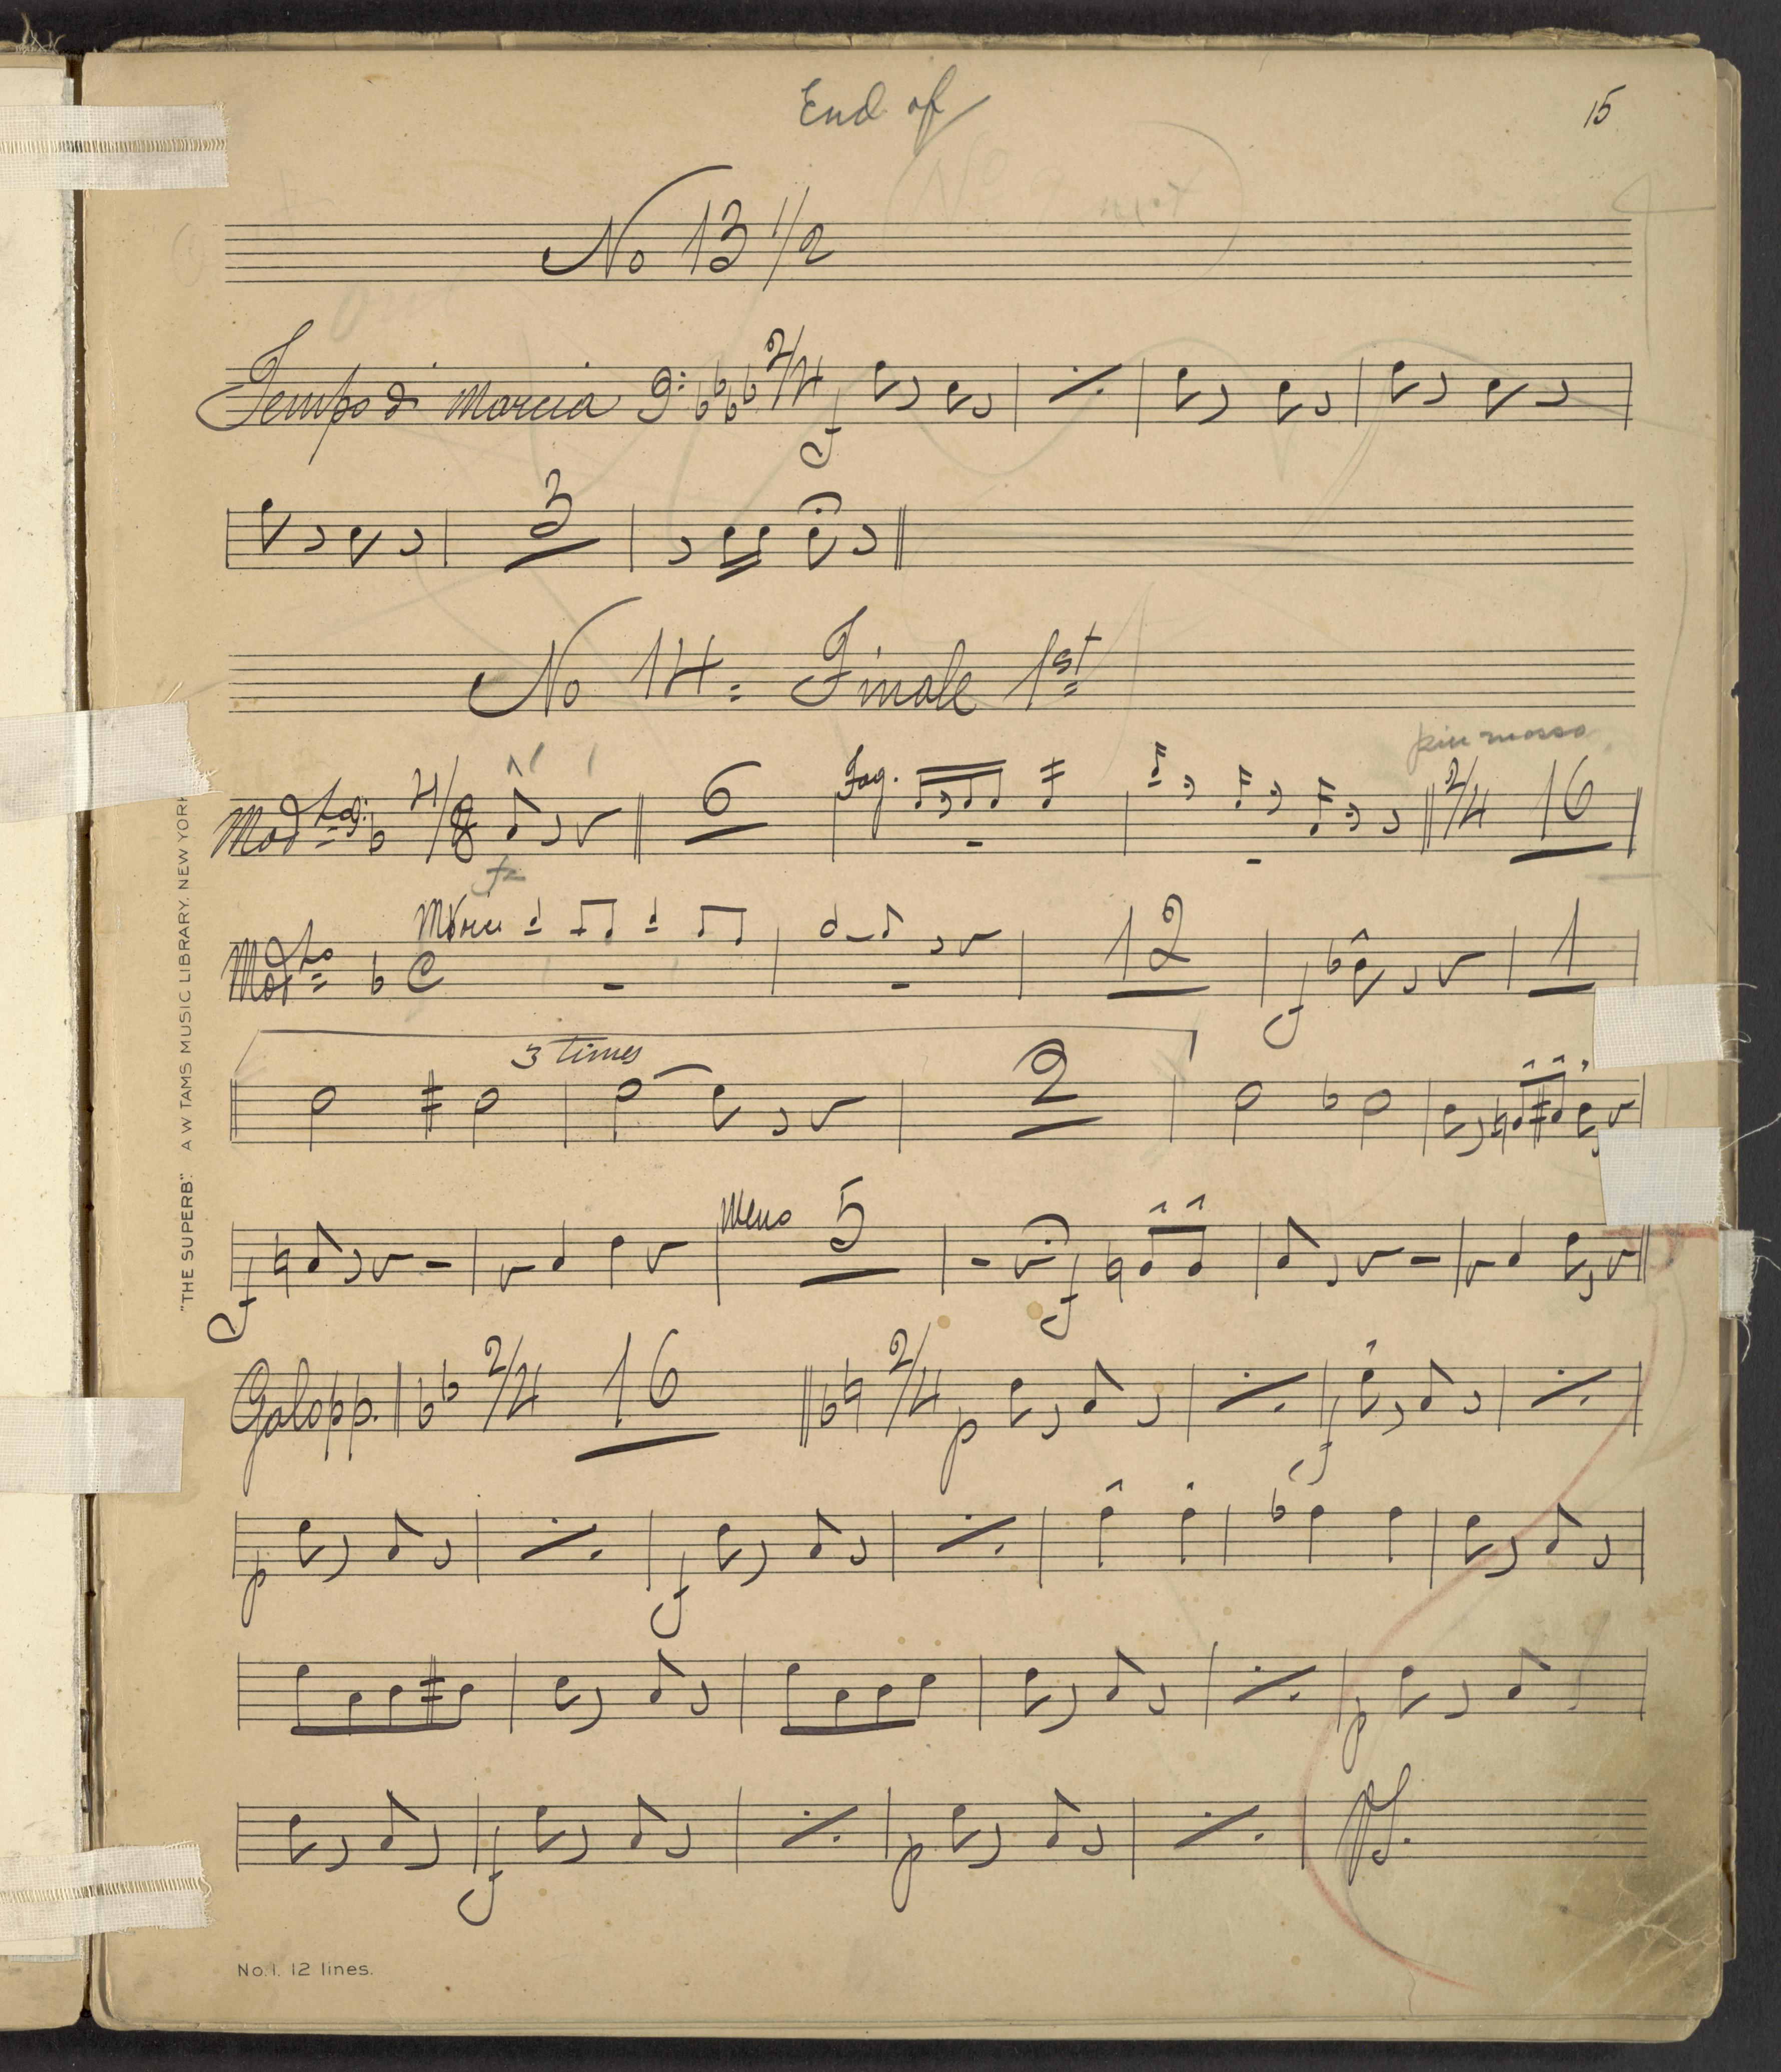 End of
15
No 13 1/2
Tempo di Marcia 2/4 f
3
No 14 = Finale 1st
piu mosso
Modto 4/8 6 Fag. 2/4 16
fz
Modto C 12 f 1
3 times
2
f Meno 5 f
Galopp. 2/4 16 2/4 p f
p f
p
f p VS.
"THE SUPERB" A W TAMS MUSIC LIBRARY. NEW YORK
No. 1. 12 lines.